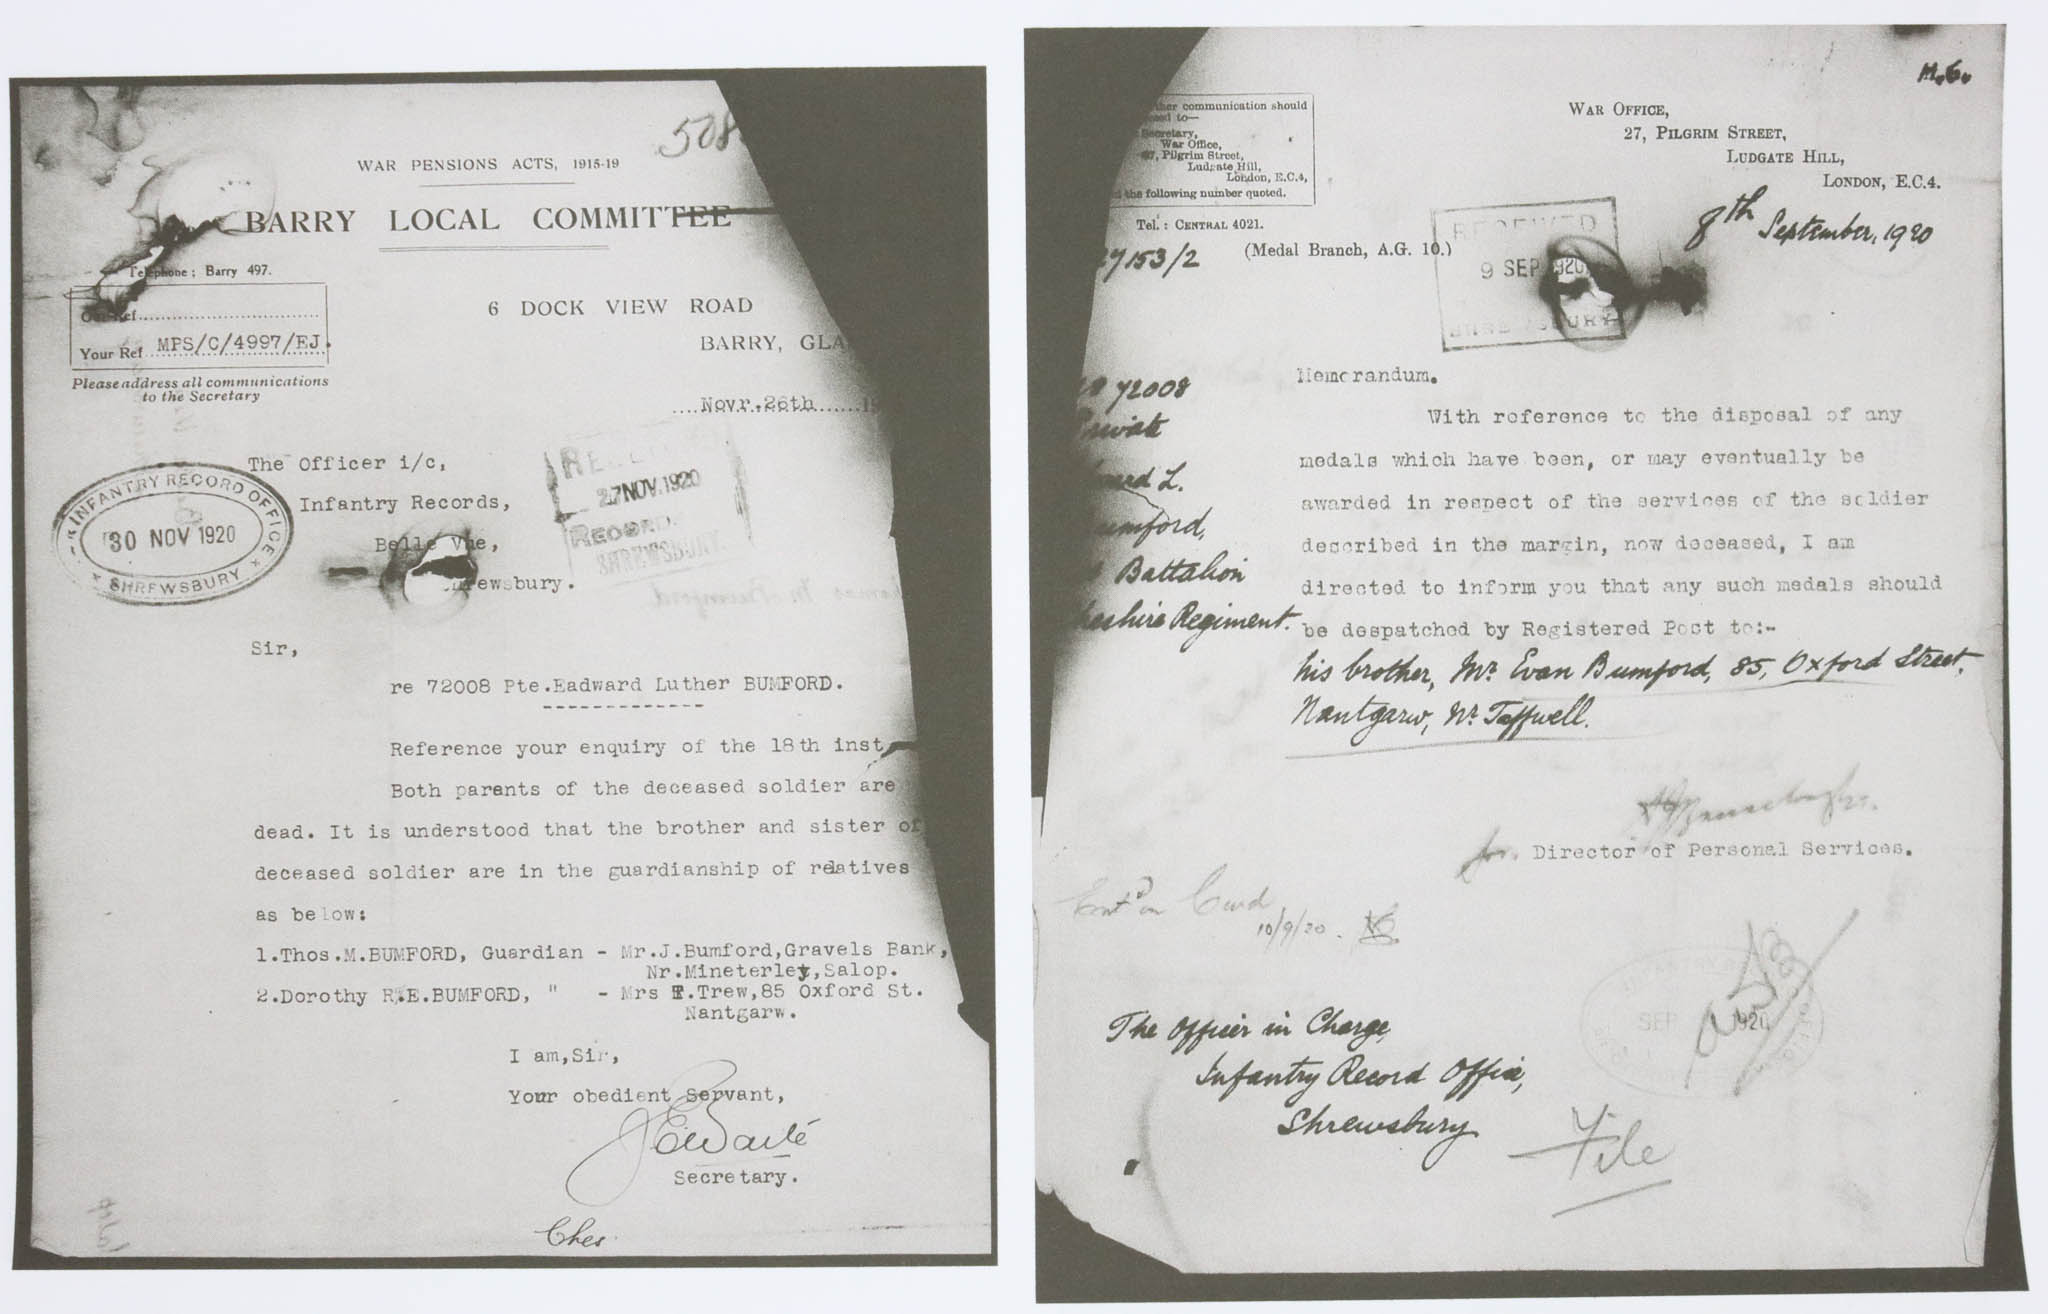 508
WAR PENSIONS ACTS, 1915-19
BARRY LOCAL COMMITTEE
Telephone: Barry 497.
Our Ref
Your Ref MPS/C/4997/EJ.
Please address all communications
to the Secretary
6 DOCK VIEW ROAD
BARRY, GLA
Novr.26th 19
The Officer i/c,
Infantry Records,
Belle Vue,
Shrewsbury.
INFANTRY RECORD OFFICE
30 NOV 1920
SHREWSBURY
27 NOV. 1920
RECORD
SHREWSBURY
Sir,
re 72008 Pte.Eadward Luther BUMFORD.
Reference your enquiry of the 18th inst
Both parents of the deceased soldier are
dead. It is understood that the brother and sister of
deceased soldier are in the guardianship of relatives
as below:
1.Thos.M.BUMFORD, Guardian - Mr.J.Bumford,Gravels Bank,
Nr.Mineterley,Salop.
2.Dorothy R.E.BUMFORD, " - Mrs T.Trew,85 Oxford St.
Nantgarw.
I am,Sir,
Your obedient Servant,
Secretary.
Ches
M.6.
WAR OFFICE,
27, PILGRIM STREET,
LUDGATE HILL,
LONDON, E.C.4.
ther communication should
sed to—
Secretary,
War Office,
27, Pilgrim Street,
Ludgate Hill,
London, E.C.4,
d the following number quoted.
Tel.: CENTRAL 4021.
27153/2
(Medal Branch, A.G. 10.)
8th September, 1920
RECEIVED
9 SEP 1920
SHREWSBURY
72008
Private
ward L.
Bumford,
Battalion
Cheshire Regiment.
Memorandum.
With reference to the disposal of any
medals which have been, or may eventually be
awarded in respect of the services of the soldier
described in the margin, now deceased, I am
directed to inform you that any such medals should
be despatched by Registered Post to:-
his brother, Mr. Evan Bumford, 85, Oxford Street,
Nantgarw, Nr. Taffwell.
for Director of Personal Services.
Ent'd on Card
10/9/20.
SEP 1920
The Officer in Charge,
Infantry Record Office,
Shrewsbury
File